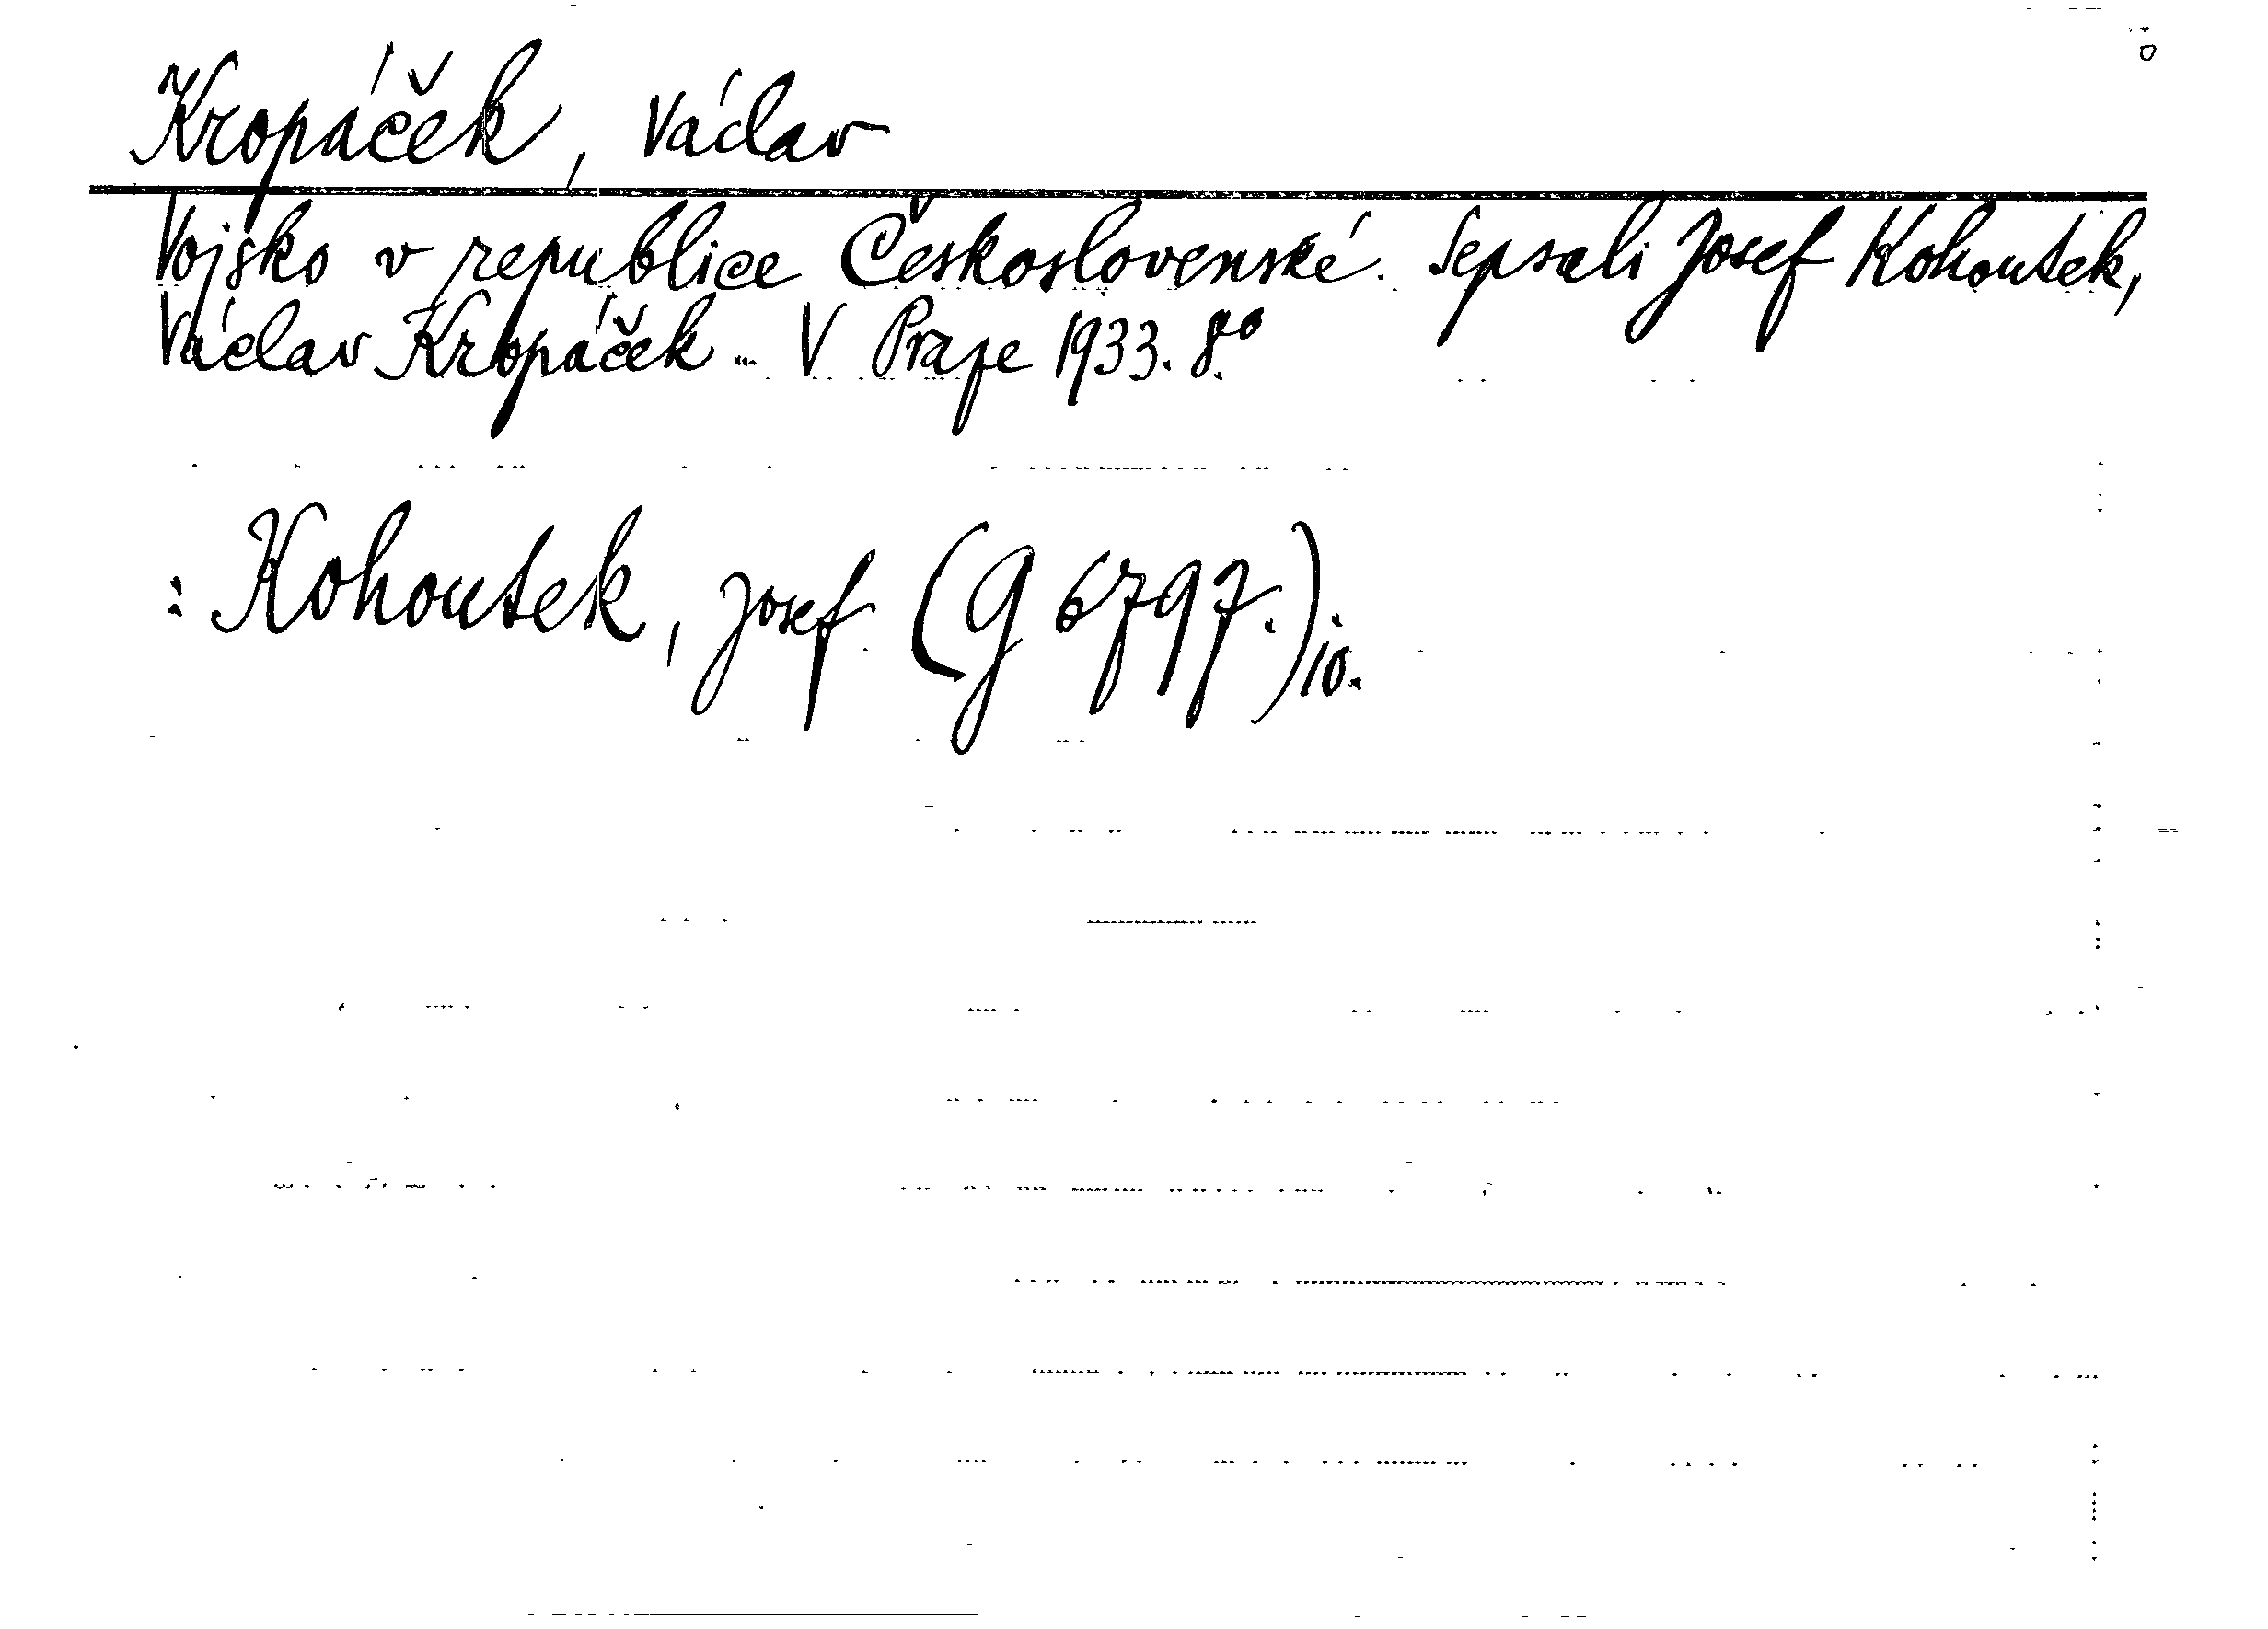 Kropáček, Václav
Vojsko v republice Československé. Sepsali Josef Kohoutek,
Václav Kropáček... V Praze 1933. 8°.
: Kohoutek, Josef (G 6797.)